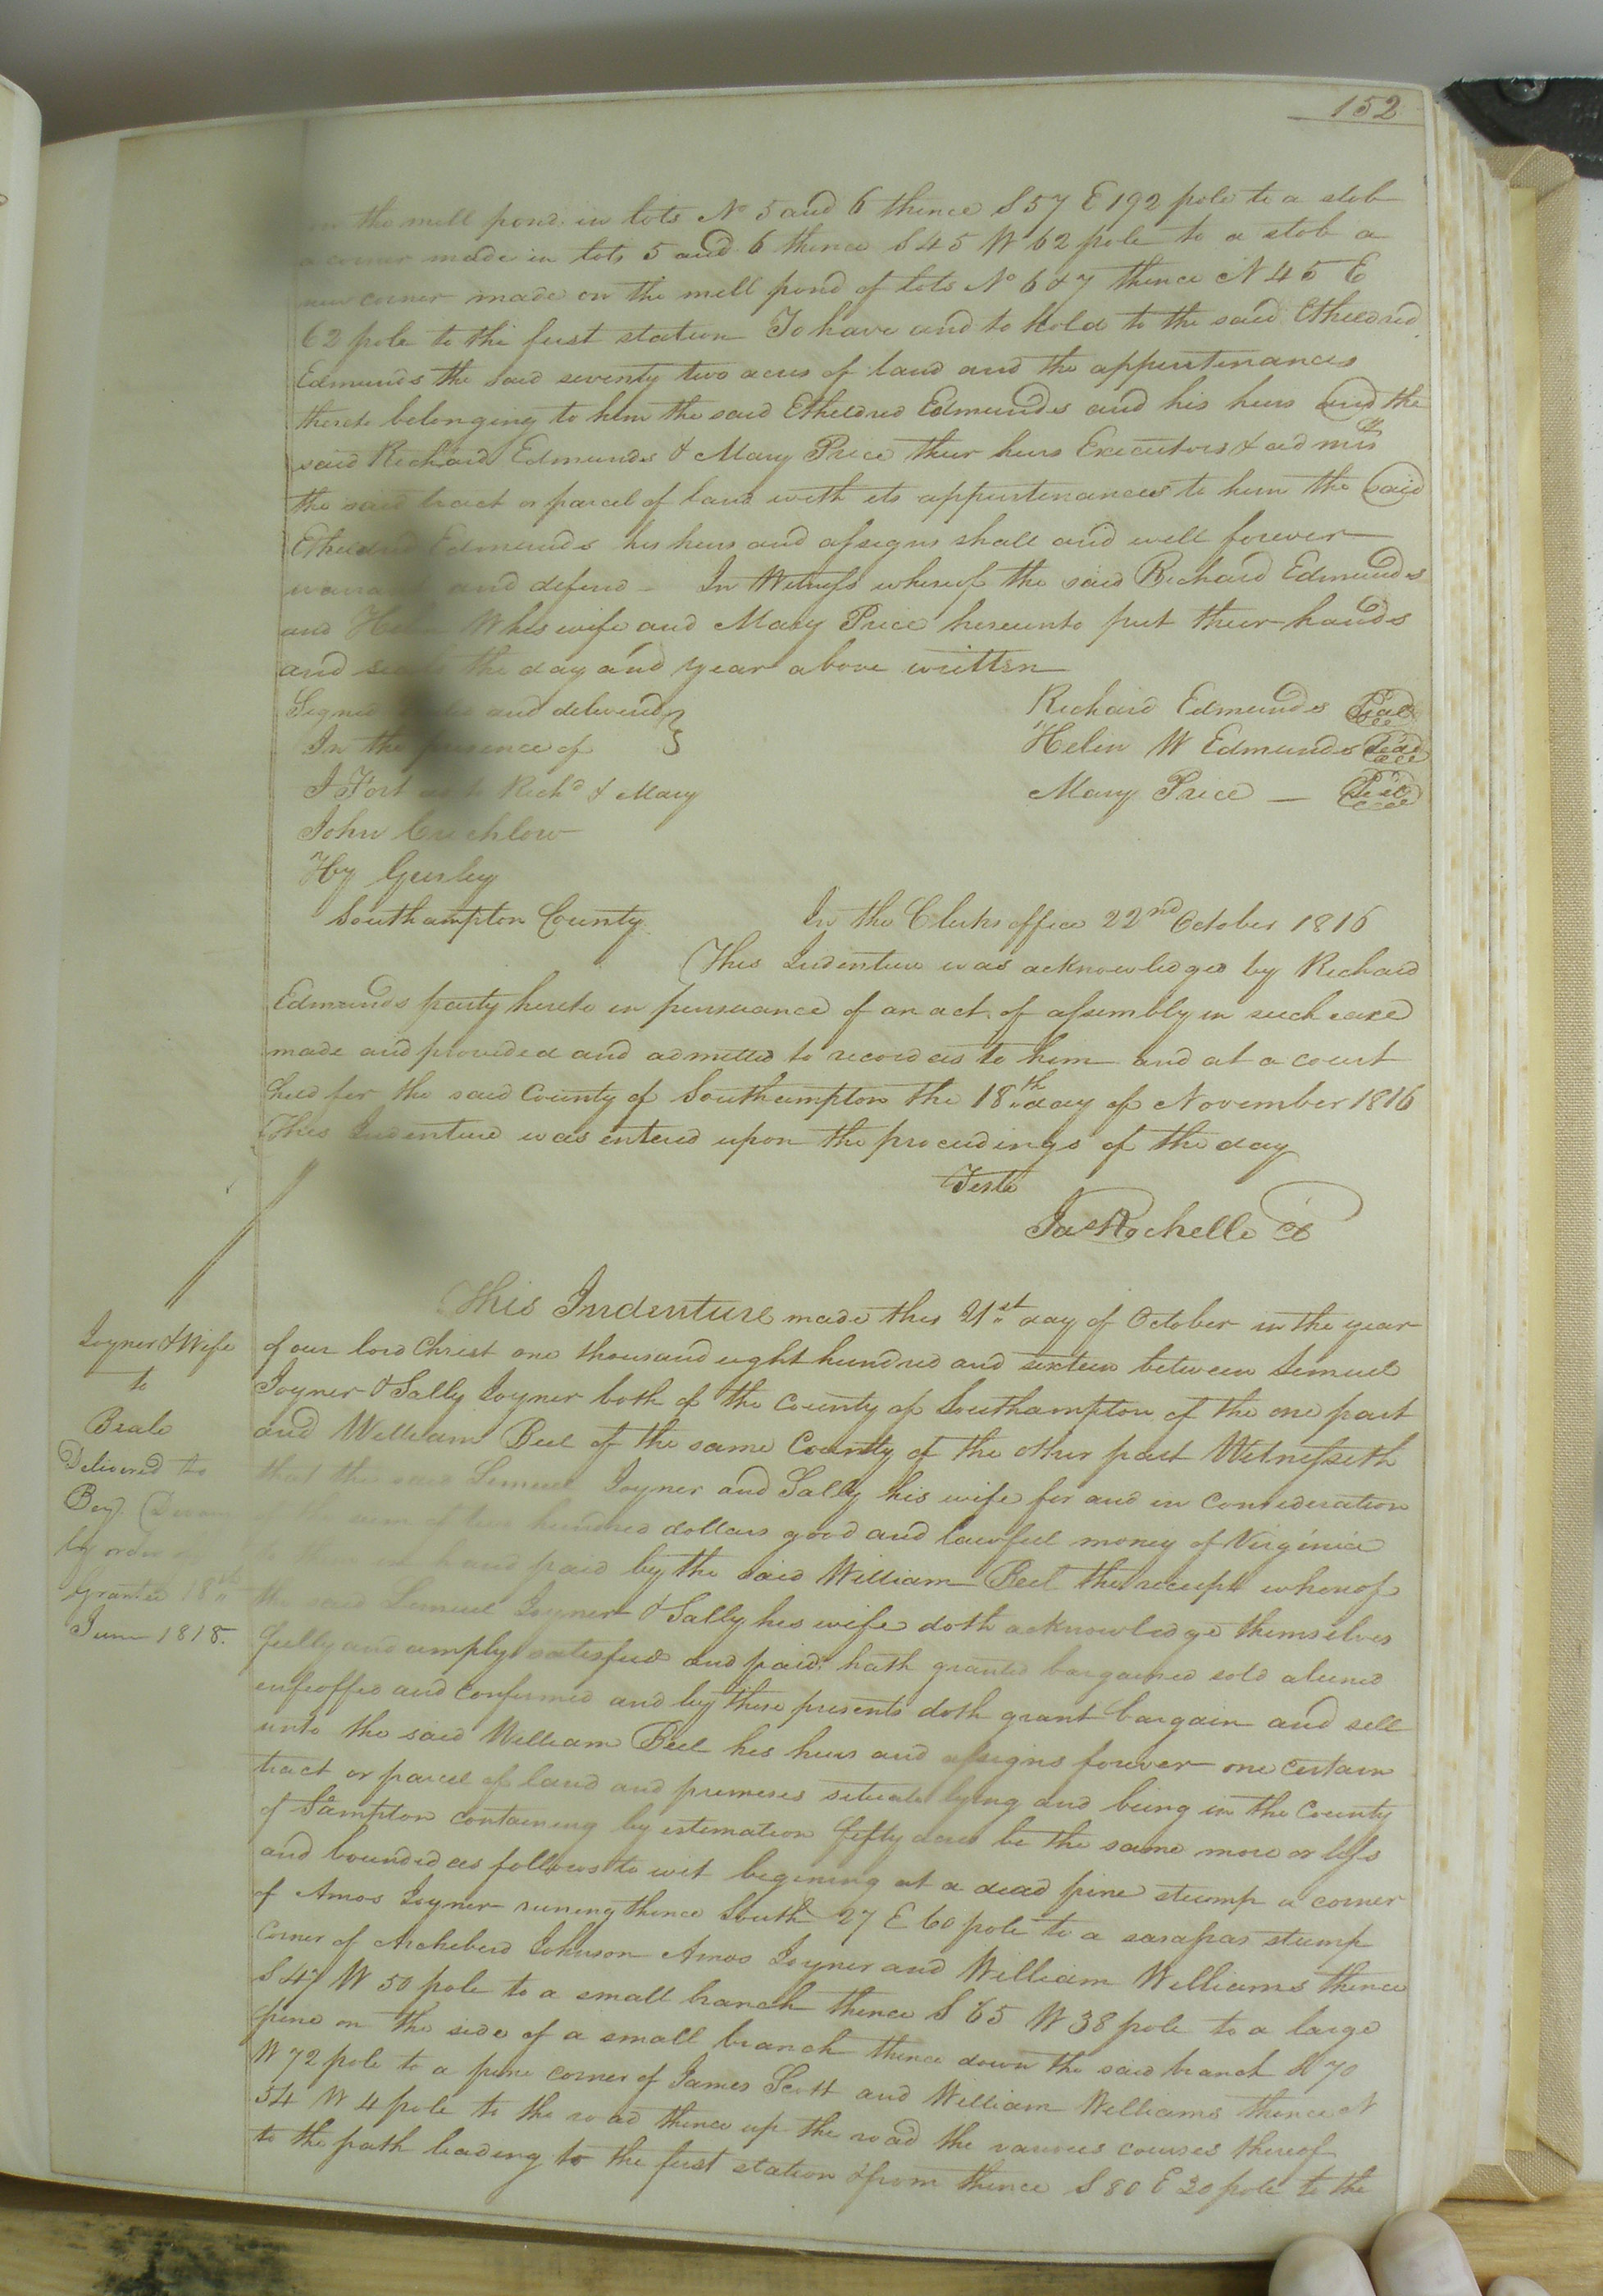 152
the mill pond in lots No 5 and 6 thence S 57 E 192 pole to a stob
a corner made in lots 5 and 6 thence S 45 W 62 pole to a stob a
new corner made on the mill pond of lots No 6 & 7 thence N 45 E
62 pole to the first station To have and to hold to the said Etheldred
Edmunds the said seventy two acres of land and the appurtenances
thereto belonging to him the said Etheldred Edmunds and his heirs and the
said Richard Edmunds & Mary Price their heirs Executors & admrs
the said tract or parcel of land with its appurtenances to him the said
Etheldred Edmunds his heirs and assigns shall and will forever
and defend – In Witness whereof the said Richard Edmunds
and W his wife and Mary Price hereunto put their hands
and seals the day and year above written
Signed and delivered
In the presence of
Richard Edmunds Seal
Helen W Edmunds Seal
Mary Price – Seal
J Fort as to Richd & Mary
John Crichlow
Hy Gurley
Southampton County In the Clerks office 22nd October 1816
This Indenture was acknowledged by Richard
Edmunds party hereto in pursuance of an act of assembly in such case
made and provided and admitted to record as to him and at a court
held for the said County of Southampton the 18th day of November 1816
This Indenture was entered upon the proceedings of the day
Teste
Jas Rochelle
Joyner & Wife
to
Beale
Delivered to
by order of
Grantee 18th
June 1818.
This Indenture made this 21st day of October in the year
of our lord Christ one thousand eight hundred and sixteen between Lemuel
Joyner & Sally Joyner both of the County of Southampton of the one part
and William Beel of the same County of the other part Witnesseth
that the said Lemuel Joyner and Sally his wife for and in Consideration
the sum of hundred dollars good and lawful money of Virginia
in hand paid by the said William Beel the receipt whereof
the said Lemuel Joyner & Sally his wife doth acknowledge themselves
fully and amply satisfied and paid hath granted bargained sold aliened
enfeoffed and confirmed and by these presents doth grant bargain and sell
unto the said William Beel his heirs and assigns forever one certain
tract or parcel of land and premises situate lying and being in the County
of Sampton containing by estemation fifty acres be the same more or less
and bounded as follows to wit begining at a dead pine stump a corner
of Amos Joyner runing thence South 27 E 60 pole to a sasapas stump
Corner of Archeberd Johnson Amos Joyner and William Williams thence
S 47 W 50 pole to a small branch thence S 65 W 38 pole to a large
pine on the side of a small branch thence down the said branch N 70
W 72 pole to a pine corner of James Scott and William Williams thence N
54 W 4 pole to the road thence up the road the various courses thereof
to the path leading to the first station & from thence S 80 E 30 pole to the